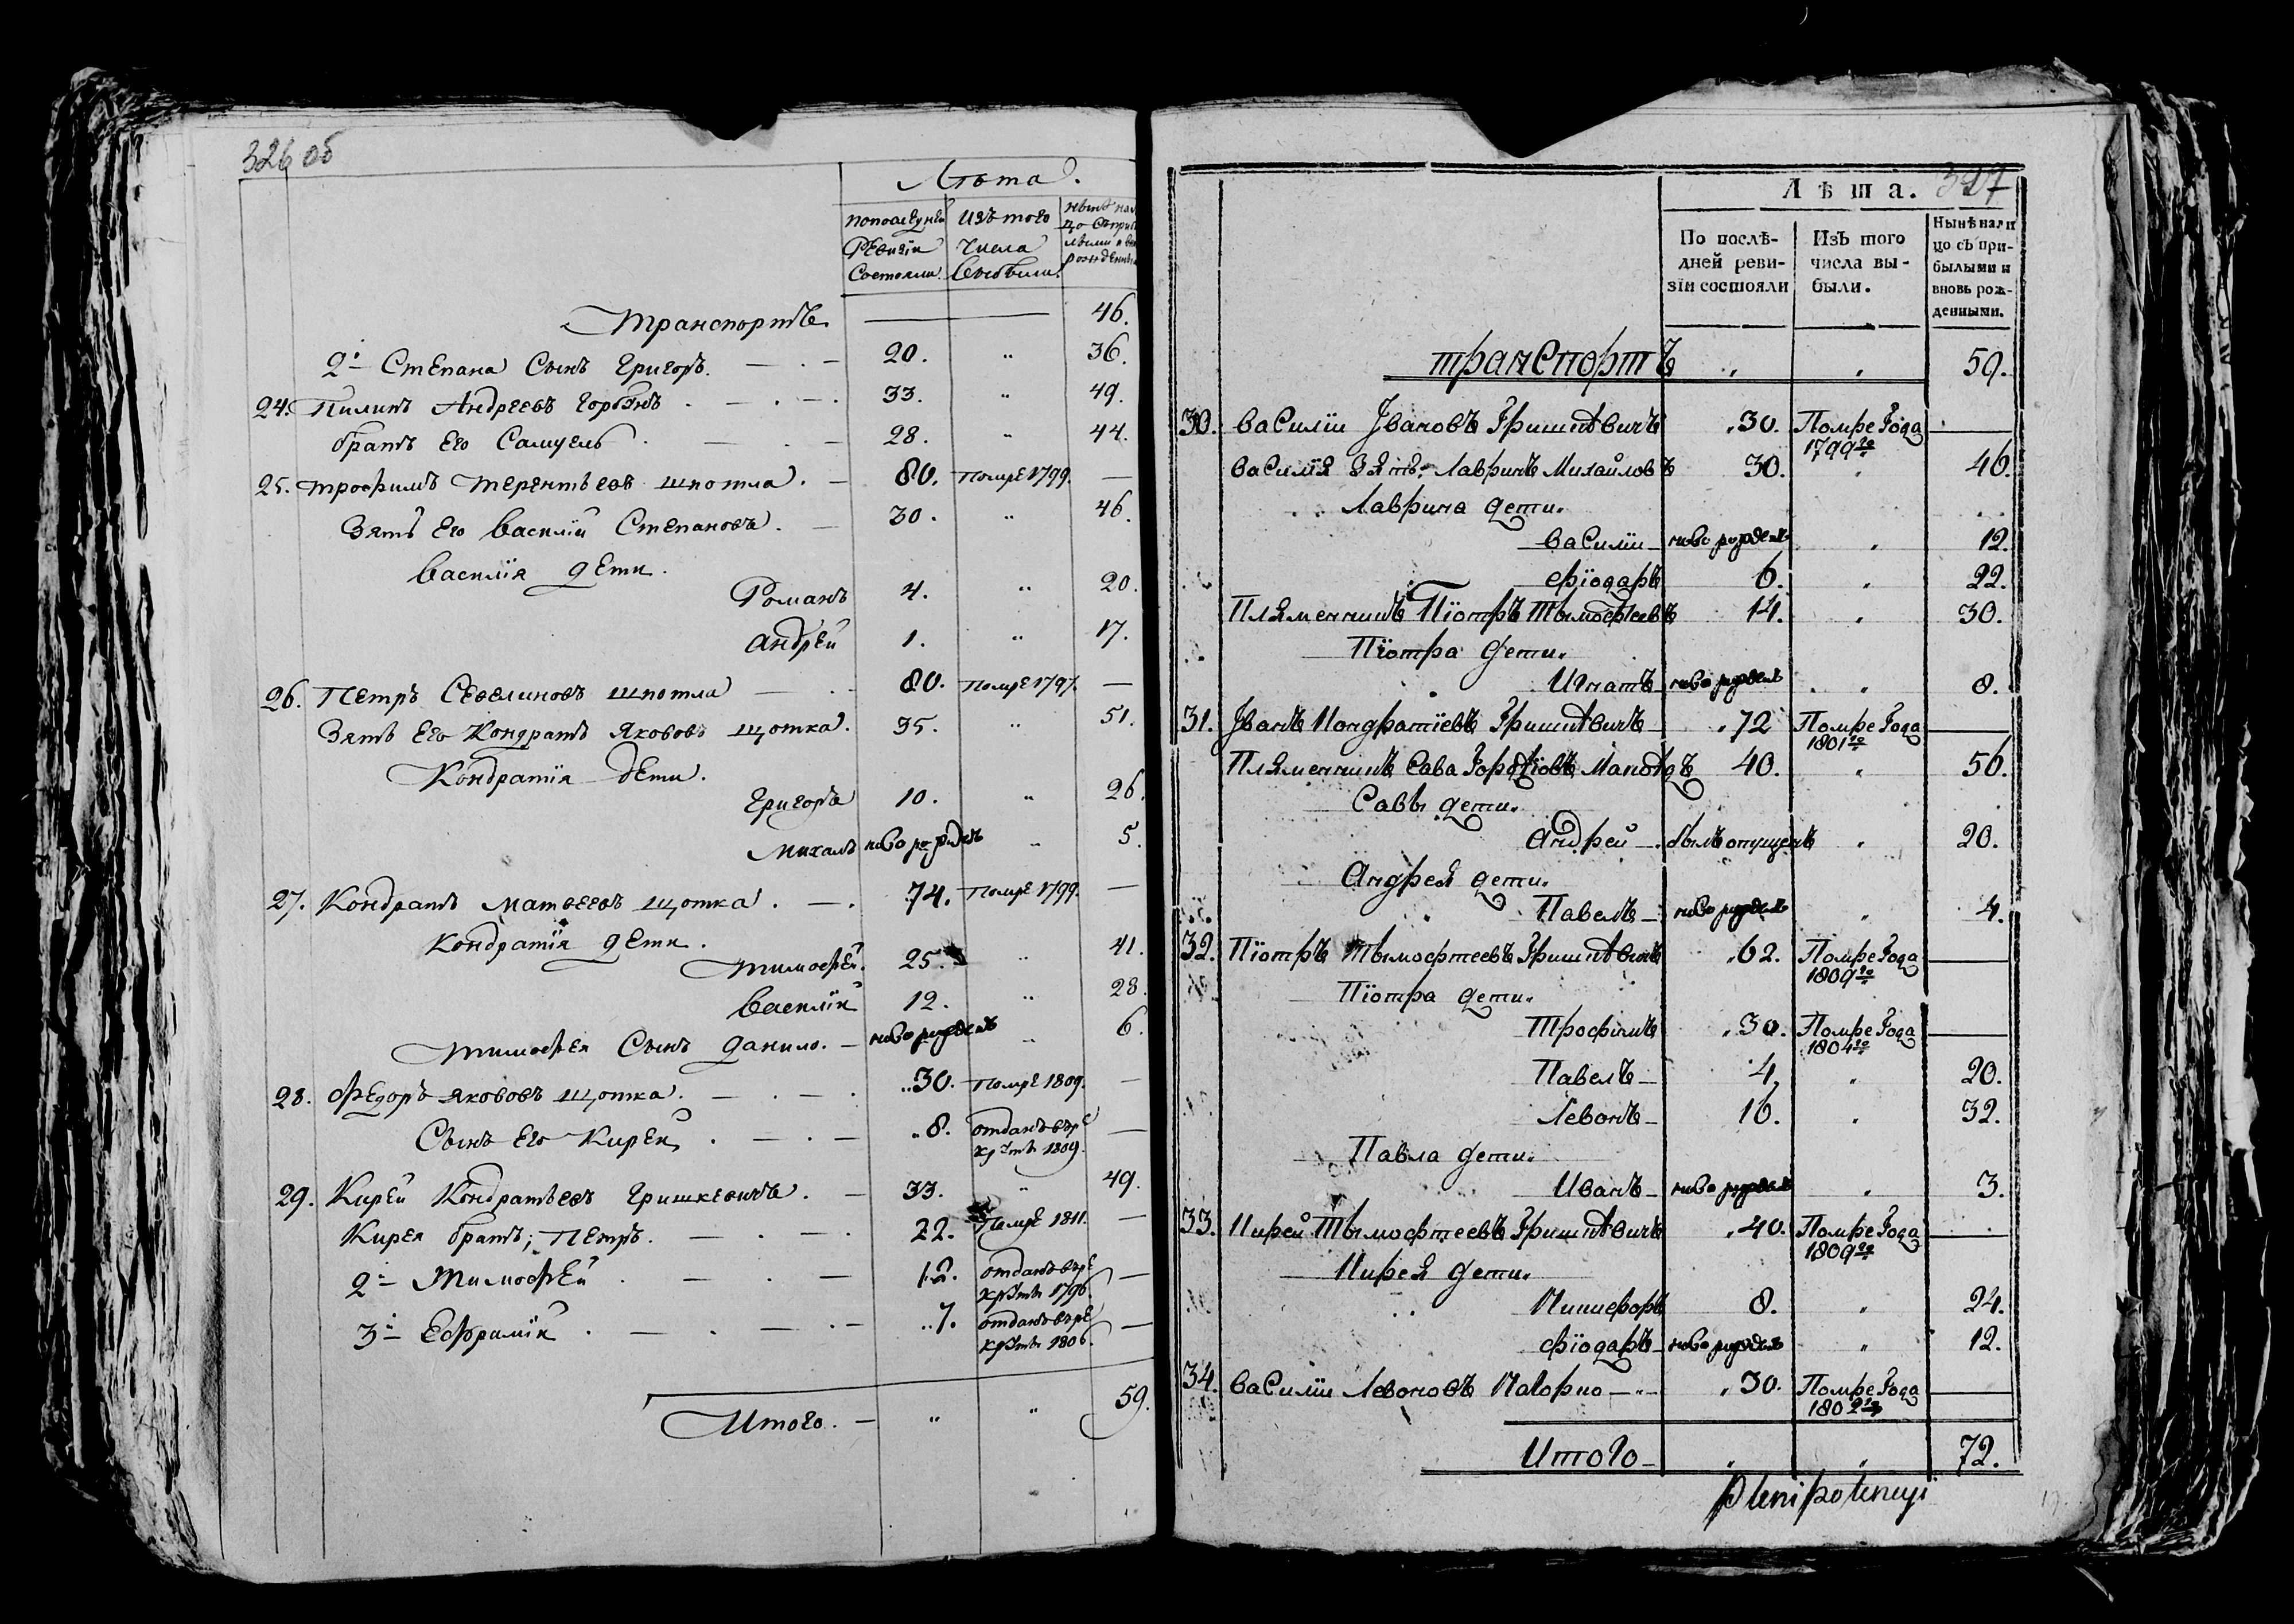 326 об
Лѣта.
По последней Ревизіи Состояли.
Изъ того Числа Выбыли.
Транспортъ — 46.
2й Степана Сынъ Григоръ. 20. „ 36.
24. Пилипъ Андреевъ Горбэнъ 33. „ 49.
братъ Его Самуель 28. „ 44.
25. Трофимъ Терентьевъ шпотла. 80. Помре 1799. —
Зять Его Василій Степановъ. 30. „ 46.
Василія дети.
Романъ 4. „ 20.
Андрей 1. „ 17.
26. Петръ Севелиновъ шпотла 80. Помре 1797. —
Зять Его Кондратъ Яковов щотка. 35. „ 51.
Кондратія дети.
Григоръ 10. „ 26.
Михалъ ново рожденъ „ 5.
27. Кондратъ Матвеевъ щотка. 74. Помре 1799. —
Кондратія дети.
Тимофей. 25. „ 41.
Василій 12. „ 28.
Тимофея Сынъ данило. ново рожденъ „ 6.
28. Федоръ Якововъ щотка. 30. Помре 1809. —
Сынъ Его Кирей. 8. отданъ въ ре
крутъ 1809. —
29. Кирей Кондратьевъ Гришкевичъ. 33. „ 49.
Кирея братъ, Петръ. 22. Помре 1811. —
2й Тимофей 12. отданъ въ ре
крутъ 1796. —
3й Ефрамій 7. отданъ въ ре
крутъ 1806. —
Итого. — „ „ 59.
327
Лѣта.
По послѣ-
дней реви-
зіи состояли
Изъ того
числа вы-
были.
Нынѣ нали
цо съ при-
былыми и
вновь рож-
денными.
транспортъ „ „ 59.
30. василіи Ивановъ Гришкѣвичъ 30. Помре Года
1799го —
василія зятъ Лавринъ Михайловъ 30. „ 46.
Лаврина дети.
василіи ново рожденъ „ 12.
фіодаръ 6. „ 22.
Пляменникъ Піотръ Тымофеевъ 14. „ 30.
Піотра дети.
Игнатъ ново рожденъ „ 8.
31. Иванъ Кондратіевъ Гришкѣвичъ 72 Помре Года
1801го —
Пляменникъ Сава 40. „ 56.
Савы дети.
Андрей былъ опущенъ „ 20.
Андрея дети.
Павелъ ново рожденъ „ 4.
32. Піотръ Тымофтеевъ Гришкѣвичъ 62. Помре Года
1809го —
Піотра дети.
Трофимъ 30. Помре Года
1804го —
Павелъ 4. „ 20.
Левонъ 16. „ 32.
Павла дети.
Иванъ ново рожденъ „ 3.
33. Кирей Тымофтеевъ Гришкѣвичъ 40. Помре Года
1809го —
Кирея дети.
Никифоръ 8. „ 24.
фіодаръ ново рожденъ „ 12.
34. василіи Левоновъ 30. Помре Года
1802го —
Итого „ „ 72.
plenipotencyi